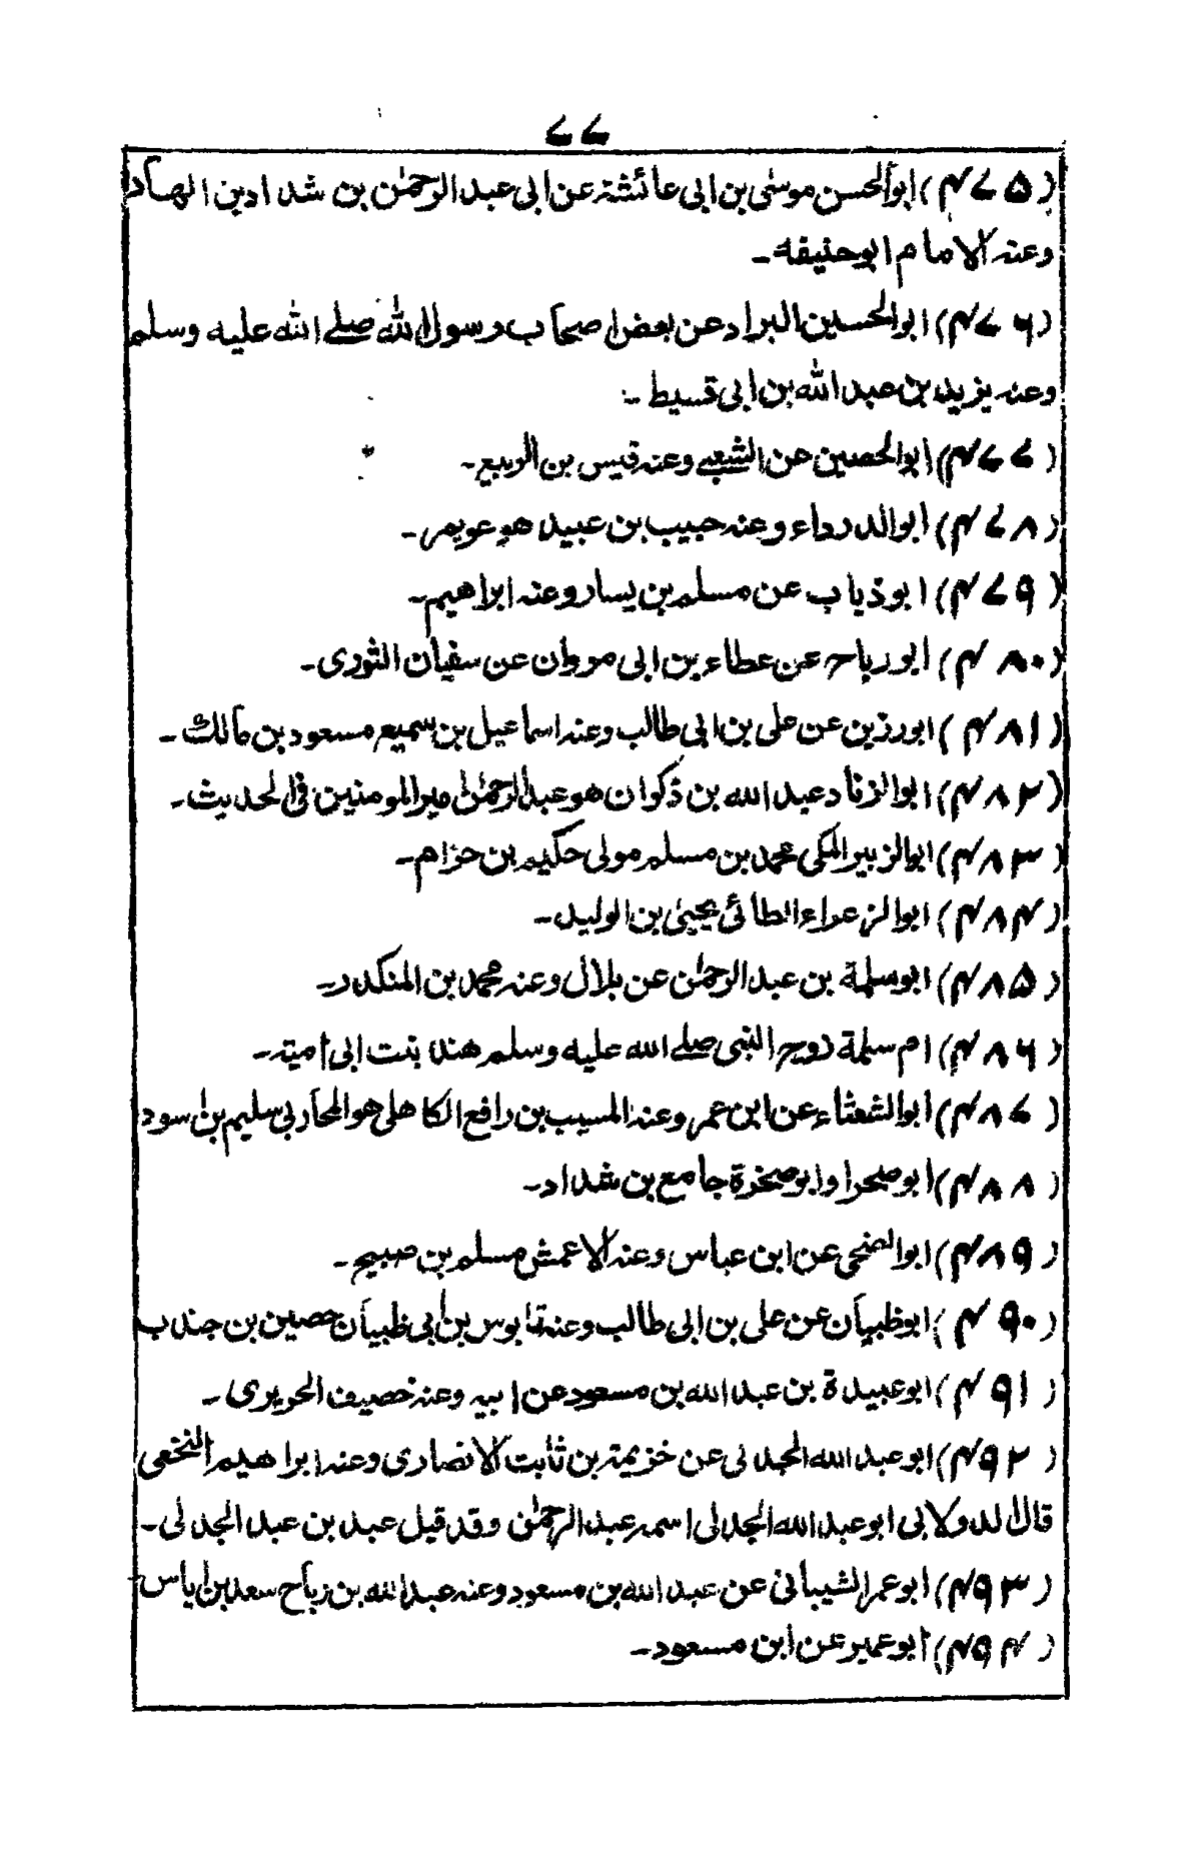 ۷۷
(۴۷۵) ابوالحسن موسیٰ بن ابی عائشۃ عن ابی عبد الرحمٰن بن شداد بن الهاد
وعنہ الامام ابوحنیفہ۔
(۴۷۶) ابوالحسین البراد عن بعض اصحاب رسول اللہ صلے اللہ علیہ وسلم
وعنہ یزید بن عبد اللہ بن ابی قسیط۔
(۴۷۷) ابوالحصین عن الشعبے وعنہ قیس بن الربیع۔
(۴۷۸) ابوالدرداء وعنہ حبیب بن عبید هو عویمر۔
(۴۷۹) ابوذیاب عن مسلم بن یسار وعنہ ابراهیم۔
(۴۸۰) ابورباح عن عطاء بن ابی مروان عن سفیان الثوری۔
(۴۸۱) ابورزین عن علی بن ابی طالب وعنہ اسماعیل بن سمیع مسعود بن مالک۔
(۴۸۲) ابوالزناد عبد اللہ بن ذکوان هو عبد الرحمٰن امیر المومنین فی الحدیث۔
(۴۸۳) ابوالزبیر المکی محمد بن مسلم مولی حکیم بن حزام۔
(۴۸۴) ابوالزعراء الطائی یحییٰ بن الولید۔
(۴۸۵) ابوسلمۃ بن عبد الرحمٰن عن بلال وعنہ محمد بن المنکدر۔
(۴۸۶) ام سلمۃ زوج النبی صلے اللہ علیہ وسلم هند بنت ابی امیۃ۔
(۴۸۷) ابوالشعثاء عن ابن عمر وعنہ المسیب بن رافع الکاهلی هو المحاربی سلیم بن اسود
(۴۸۸) ابوصحرا وابوصخرۃ جامع بن شداد۔
(۴۸۹) ابوالضحی عن ابن عباس وعنہ الاعمش مسلم بن صبیح۔
(۴۹۰) ابوظبیان عن علی بن ابی طالب وعنہ قابوس بن ابی ظبیان حصین بن جندب
(۴۹۱) ابوعبیدۃ بن عبد اللہ بن مسعود عن ابیہ وعنہ خصیف الحریری۔
(۴۹۲) ابوعبد اللہ الجدلی عن خزیمۃ بن ثابت الانصاری وعنہ ابراهیم النخعی
قال الدولابی ابوعبد اللہ الجدلی اسمہ عبد الرحمٰن وقد قیل عبد بن عبد الجدلی۔
(۴۹۳) ابوعمر الشیبانی عن عبد اللہ بن مسعود وعنہ عبد اللہ بن رباح سعد بن ایاس
(۴۹۴) ابوعمیر عن ابن مسعود۔